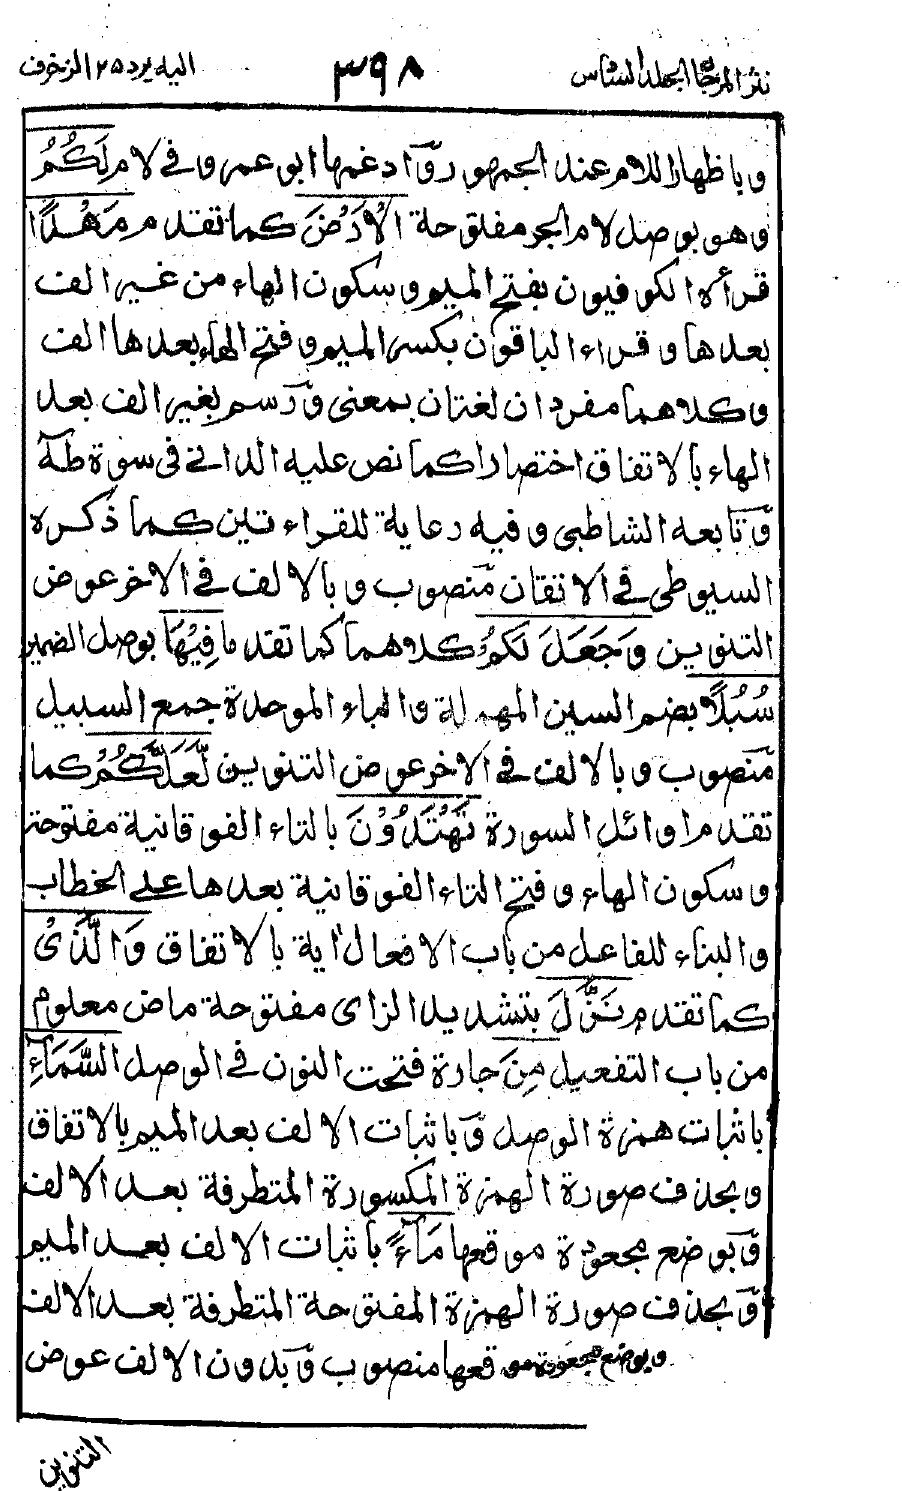 نثر المرجان الجلد السادس ٣٩٨ اليه يرد ٢٥ الزخرف
وباظهار اللام عند الجمهور وّادغمها ابو عمرو في لام لَكُمُ
وهو بوصل لام الجر مفتوحة الْاَرْضَ كما تقدم مَهْدًا
قرأه الكوفيون بفتح الميم وسكون الهاء من غير الف
بعدها وقراء الباقون بكسر الميم وفتح الهاء بعدها الف
وكلاهما مفردان لغتان بمعنى وّرسم بغير الف بعد
الهاء بالاتفاق اختصارا كما نص عليه الداني في سورة طٰهٰ
وّتابعه الشاطبي وفيه رعاية للقراءتين كما ذكره
السيوطي في الاتقان منصوب وبالالف في الاخر عوض
التنوين وَجَعَلَ لَكُمْ كلاهما كما تقدما فِيْهَا بوصل الضمير
سُبُلًا بضم السين المهملة والباء الموحدة جمع السبيل
منصوب وبالالف في الاخر عوض التنوين لَّعَلَّكُمْ كما
تقدم اوائل السورة تَهْتَدُوْنَ بالتاء الفوقانية مفتوحة
وسكون الهاء وفتح التاء الفوقانية بعدها على الخطاب
والبناء للفاعل من باب الافعال اية بالاتفاق وَالَّذِىْ
كما تقدم نَزَّلَ بتشديد الزاى مفتوحة ماض معلوم
من باب التفعيل مِنَ جارة فتحت النون في الوصل السَّمَآءِ
باثبات همزة الوصل وّباثبات الالف بعد الميم بالاتفاق
وبحذف صورة الهمزة المكسورة المتطرفة بعد الالف
وّبوضع مجعودة موقعها مَآءً باثبات الالف بعد الميم
وّبحذف صورة الهمزة المفتوحة المتطرفة بعد الالف
وبوضع مجعودة موقعها منصوب وّبدون الالف عوض
التنوين